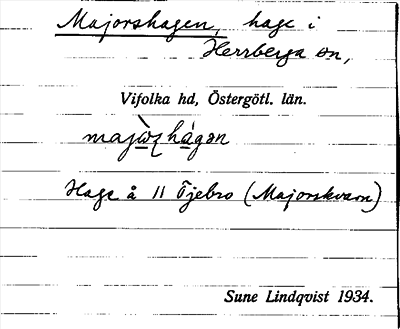 Majorshagen, hage i
Herrberga sn,
Vifolka hd, Östergötl. län.
Hage å 11 Tjebro (Majorskvarn)
Sune Lindqvist 1934.